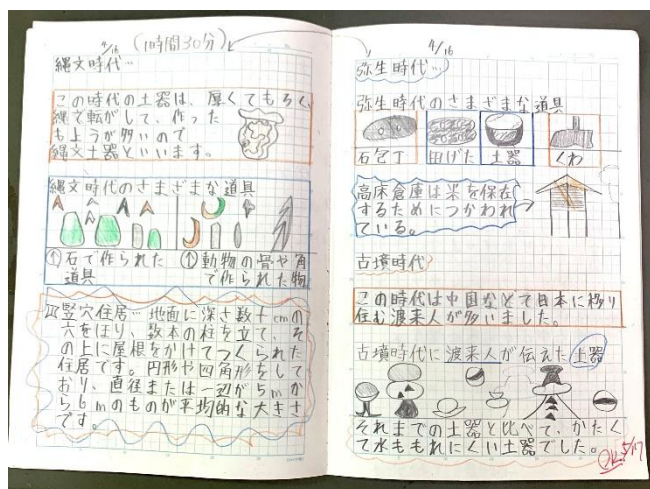 4/16 (1時間30分)
縄文時代…
この時代の土器は、厚くてもろく、
縄で転がして、作った
もようが多いので
縄文土器といいます。
縄文時代のさまざまな道具
↑石で作られた
道具
↑動物の骨や角
で作られた物
竪穴住居…地面に深さ数十cmの
穴をほり、数本の柱を立て、そ
の上に屋根をかけてつくられた
住居です。円形や四角形をして
おり、直径または一辺が5mか
ら6mのものが平均的な大きさ
です。
4/16
弥生時代…
弥生時代のさまざまな道具
石包丁 田げた 土器 くわ
高床倉庫は米を保存
するためにつかわれ
ている。
古墳時代
この時代は中国などで日本に移り
住む渡来人が多いました。
古墳時代に渡来人が伝えた土器
それまでの土器と比べて、かたく
て水ももれにくい土器でした。
OK 5/17